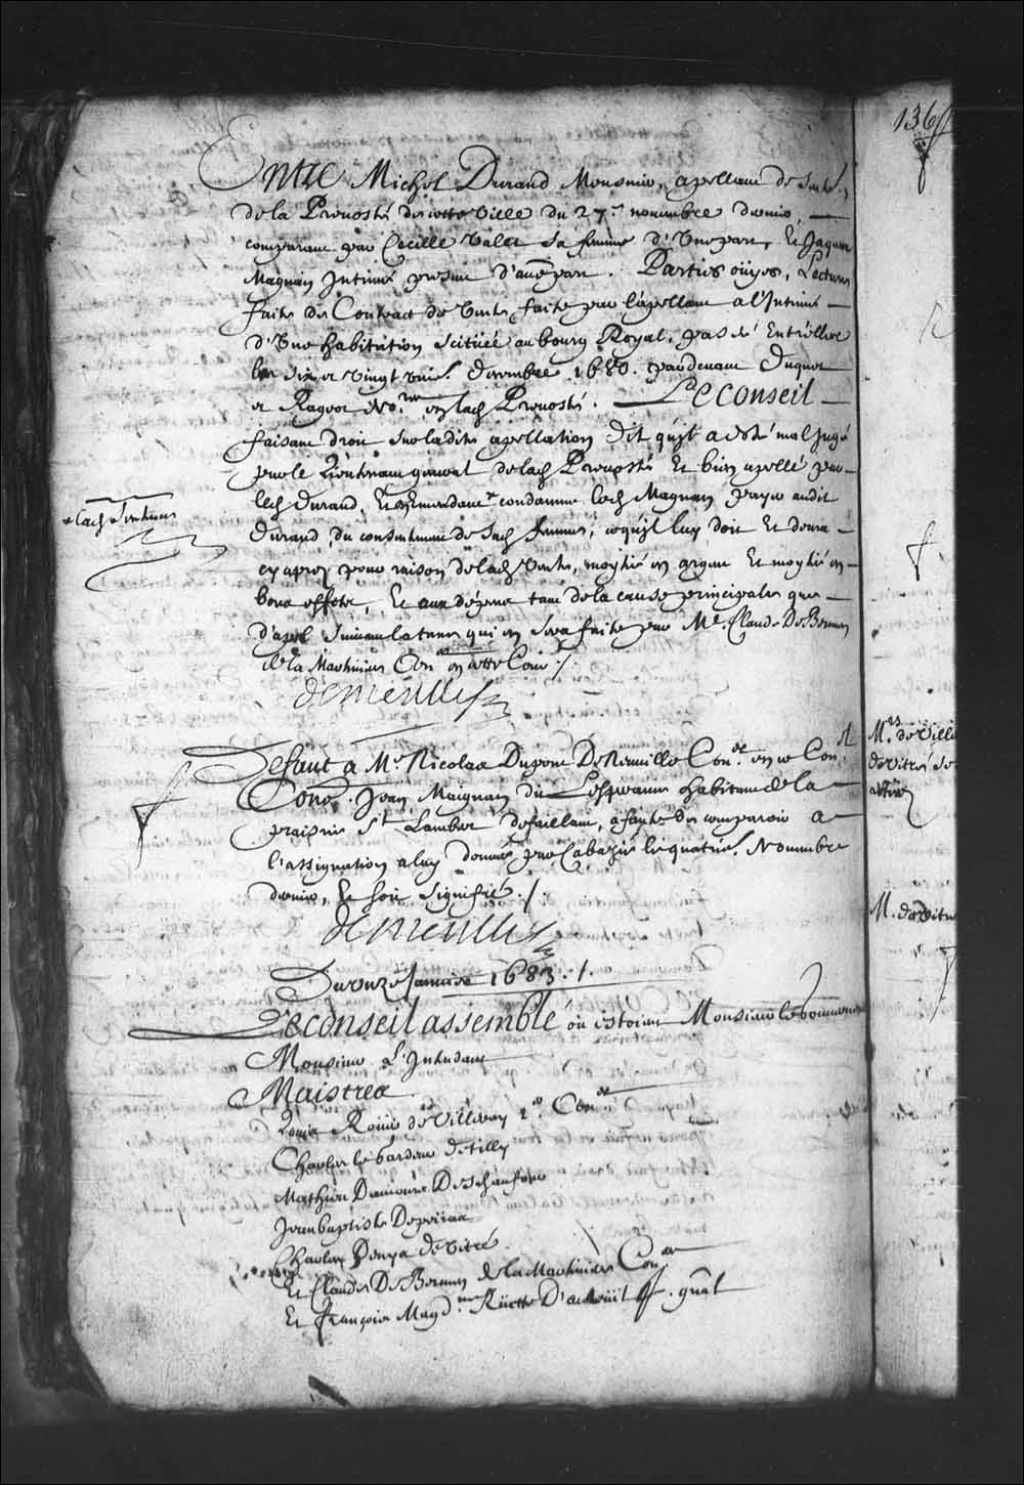 136
Entre Michel Durand Meusnier, apellant de Sente.
de la Prevosté de cette Ville du 27.e novembre dernier,
comparant par Cecille Valet sa femme d'Une part, Et Jaques
Magnan Intimé present d'au͠e part. Parties oüyes, Lecture
faite du Contract de Vente faite par l'apellant a l'Intimé
d'Une habitation Scitüée au bourg Royal, passé Entr'elles
le six et Vingt Unie. decembre 1680. pardevant Duquet
et Rageot No.res en lad. Prevosté. Le Conseil
faisant droit sur ladite apellation dit qu'jl a esté mal Jugé
par le Lieutenant general de lad. Prevosté Et bien apellé par
led. Durand, Et Emendant condamne led. Magnan payer audit
+ lad. Sentence
Durand, du consentement de Sad. femme, ce qu'jl luy doit Et devra
cy apres pour raison de lad. Vente, moytié en argent Et moytié en
bons effets, Et aux dépens tant de la cause principale que
d'apel Suivant la taxe qui en sera faite par Me. Claude De Bermen
de la Martiniere Con.er en cette Cour ./.
demeulles
Defaut a Me. Nicolas Dupont De Neuville Con.er en ce Con.el
Contre Jean Maignan dit Lesperance habitant de la
praisrie St Lambert defaillant, a faute de comparoir a
l'assignation a luy donnée par Cabazié le quatrie. Novembre
dernier, Et soit signifié ./.
demeulles
Du onze Januier 1683 ./.
Le conseil assemblé où estoient Monsieur le Gouverneur
Monsieur L'Intendant
Maistres
Louis Roüer de Villeray 1.er Con.er
Charles le Gardeur de Tilly
Mathieu Damours Deschaufour
Jean baptiste Depeiras
Charles Denys de Vitré
Et Claude De Bermen de la Martiniere Con.ers
Et François Magd.ne Rüette D'auteüil pr. gnãl
Mrs. de Ville
de Vitré se
M. de Vitré